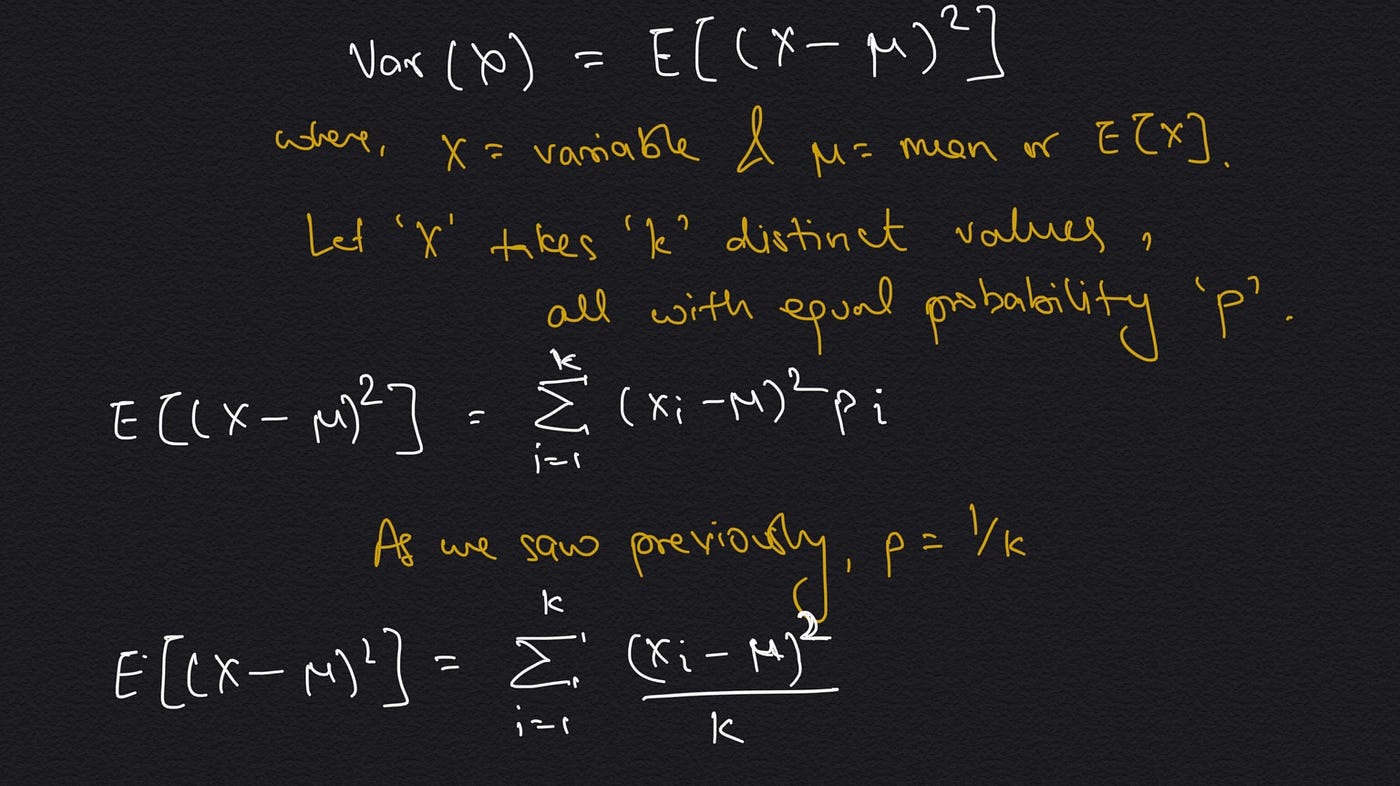 Var(X) = E[(X - μ)²]
where, X = variable & μ = mean or E[X].
Let 'X' takes 'k' distinct values,
all with equal probability 'p'.
E[(X - μ)²] = ∑_{i=1}^{k} (xi - μ)² pi
As we saw previously, p = 1/k
E[(X - μ)²] = ∑_{i=1}^{k} (xi - μ)² / k